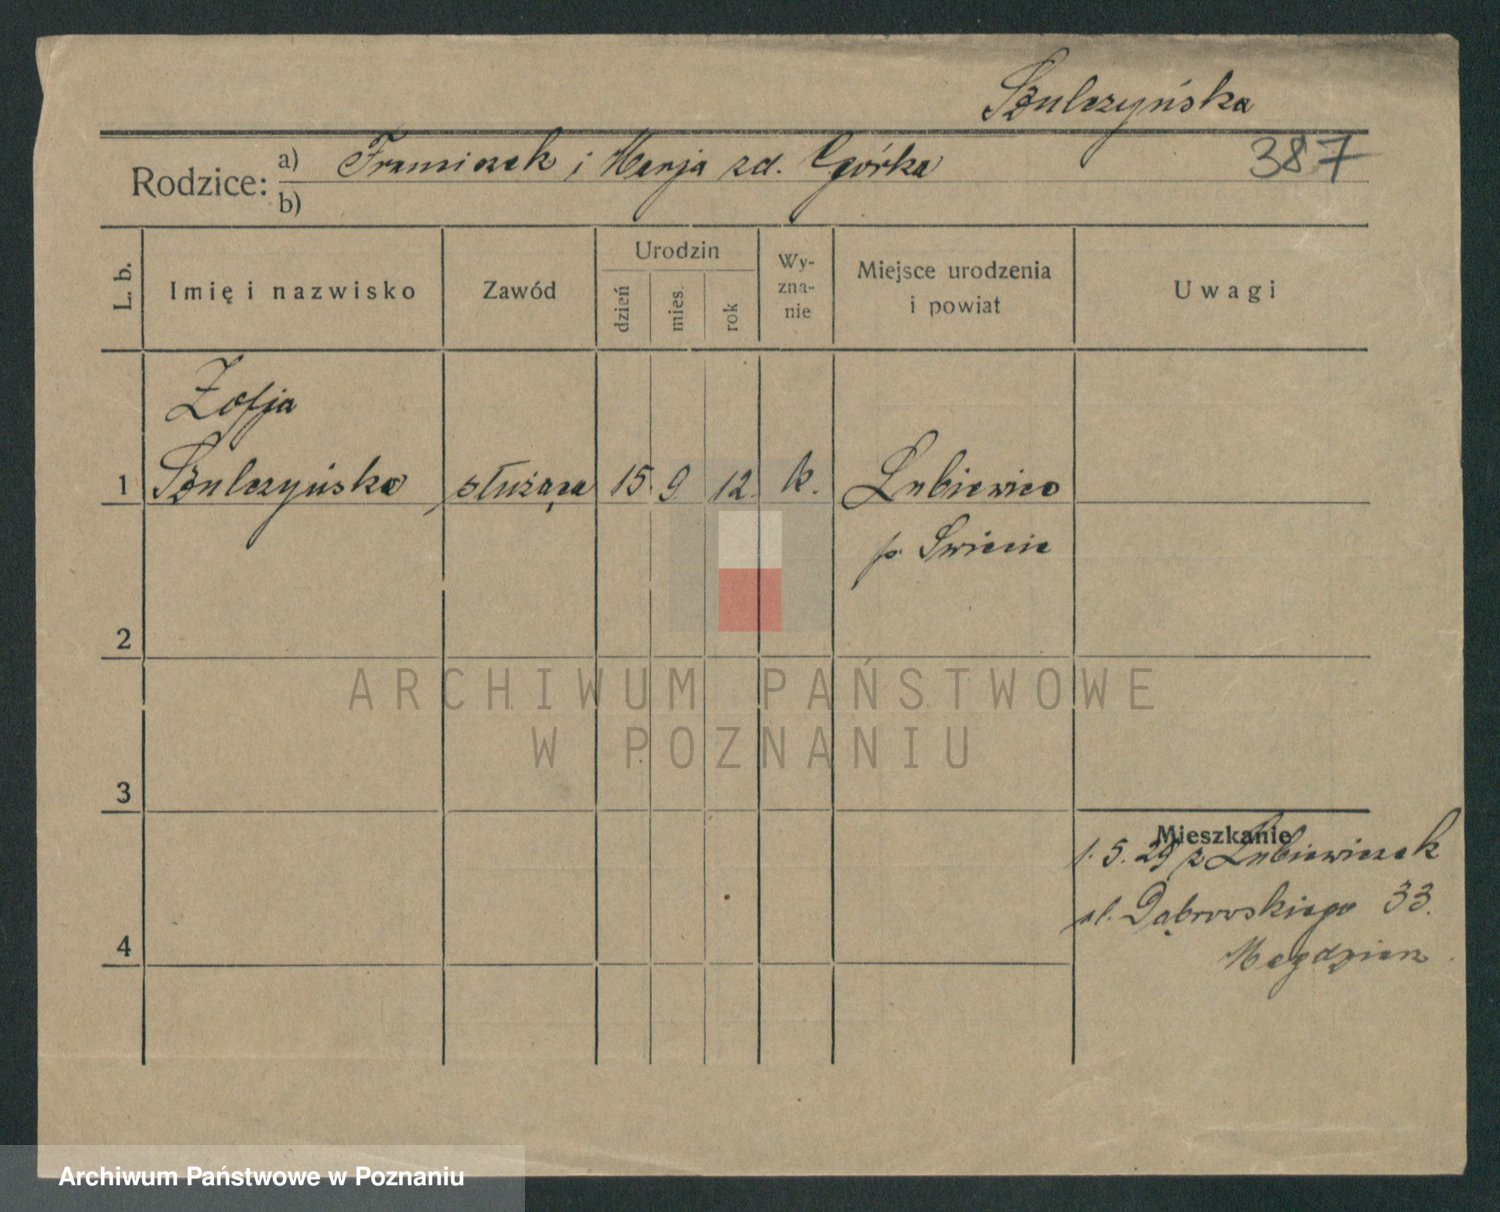 Szulczyńska
387
Rodzice: a) Franciszek i Marja zd. Górka
b)
L. b.
Imię i nazwisko
Zawód
Urodzin
dzień
mies.
rok
Wy-
zna-
nie
Miejsce urodzenia
i powiat
Uwagi
Zofja
1 Szulczyńska służąca 15. 9. 12. k. Lubiewice
p. Świecie
2
3
4
Mieszkanie
1. 5. 29 z Lubiewiczek
ul. Dąbrowskiego 33.
ARCHIWUM PAŃSTWOWE
W POZNANIU
Archiwum Państwowe w Poznaniu